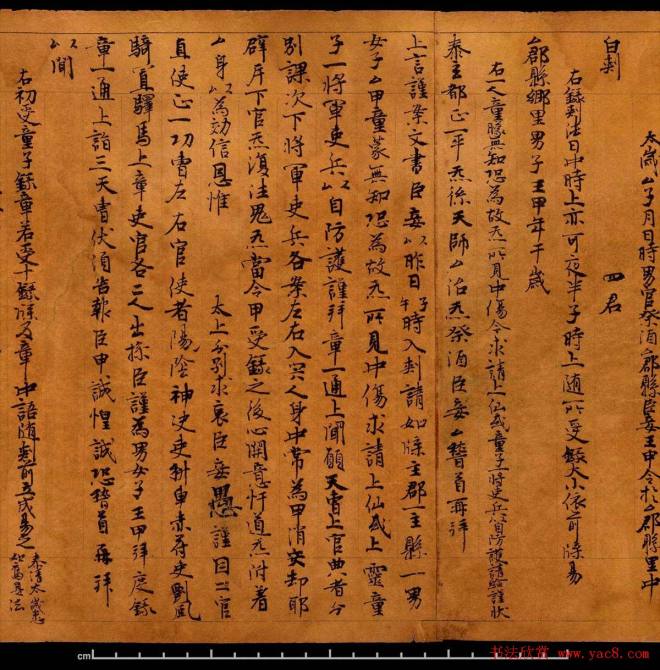 太歲厶子月日時男官祭酒厶郡縣臣妾王甲今於厶郡縣里中
白刺
四君
右錄刺法日中時上亦可夜半子時上隨所受錄大小依前牒易
厶郡縣鄉里男子王甲年干歲
右一人童矇無知恐為故炁所見中傷今求請上仙或童子一將吏兵以自防護請給謹狀
泰玄都正一平炁係天師厶治炁祭酒臣妾厶稽首再拜
上言謹案文書臣妾以昨日子午時入刺請如牒主郡主縣一男
女子厶甲童蒙無知恐為故炁所見中傷求請上仙或上靈童
子一將軍吏兵以自防護謹拜章一通上聞願天曹上官典者分
別課次下將軍吏兵各案左右入冥人身中常為甲消灾却耶
辟斥下官炁復注鬼炁當令甲受錄之後心開意忏道炁附著
厶身以為効信恩惟 太上分別求哀臣妾愚謹因二官
直使正一功曹左右官使者陽陰神決吏科車赤符吏劉風
騎置驛馬上章吏官各二人出操臣謹為男女子王甲拜度錄
章一通上詣三天曹伏須告報臣甲誠惶誠恐稽首再拜
以聞
右初受童子錄章若受十錄牒及章中語隨刺前五式易之
泰清太歲悉
如舊是法
cm
书法欣赏 www.yac8.com